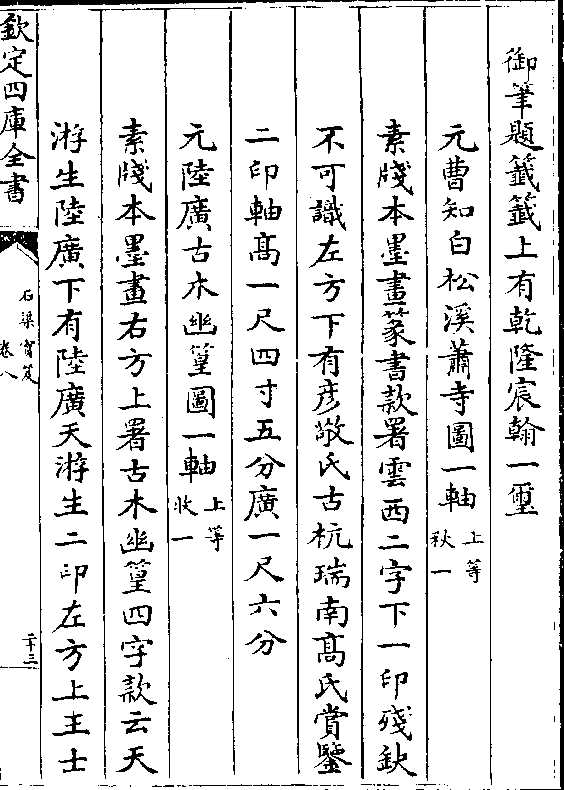 御筆題籤籤上有乾隆宸翰一璽
元曹知白松溪蕭寺圖一軸 上等 秋一
素牋本墨畫篆書款署雲西二字下一印殘缺
不可識左方下有彥敬氏古杭瑞南髙氏賞鑒
二印軸髙一尺四寸五分廣一尺六分
元陸廣古木幽篁圖一軸 上等 收一
素牋本墨畫右方上署古木幽篁四字款云天
游生陸廣下有陸廣天游生二印左方上王士
欽定四庫全書
石渠寳笈
卷八
二十三